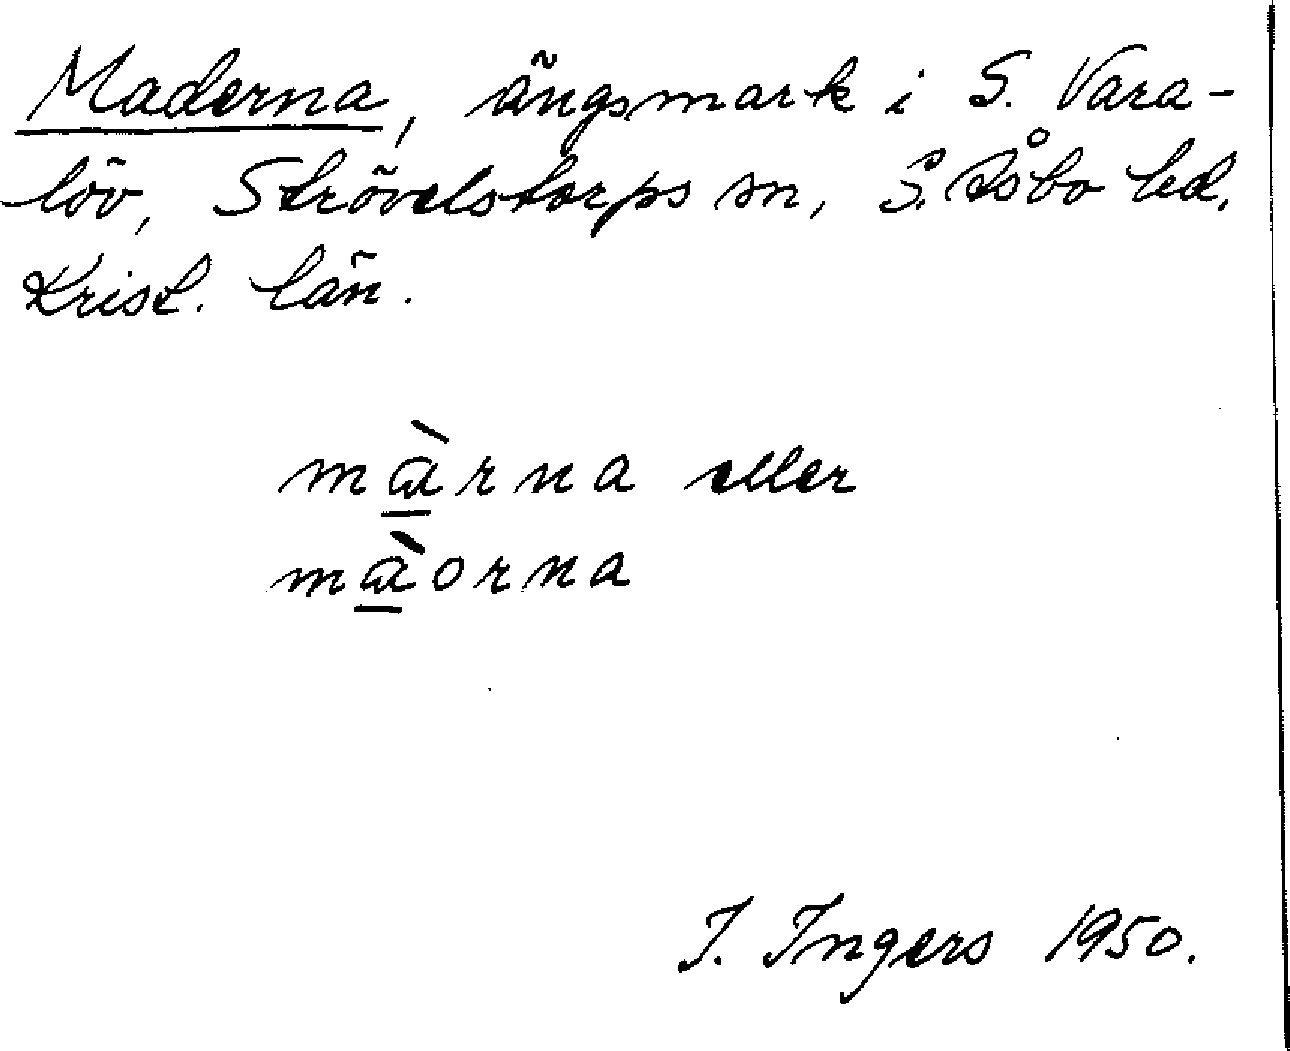 Maderna, ängsmark i S. Vara-
löv, Strövelstorps sn, S. Åsbo hd.
Krist. län.
màrna eller
màorna
I. Ingers 1950.